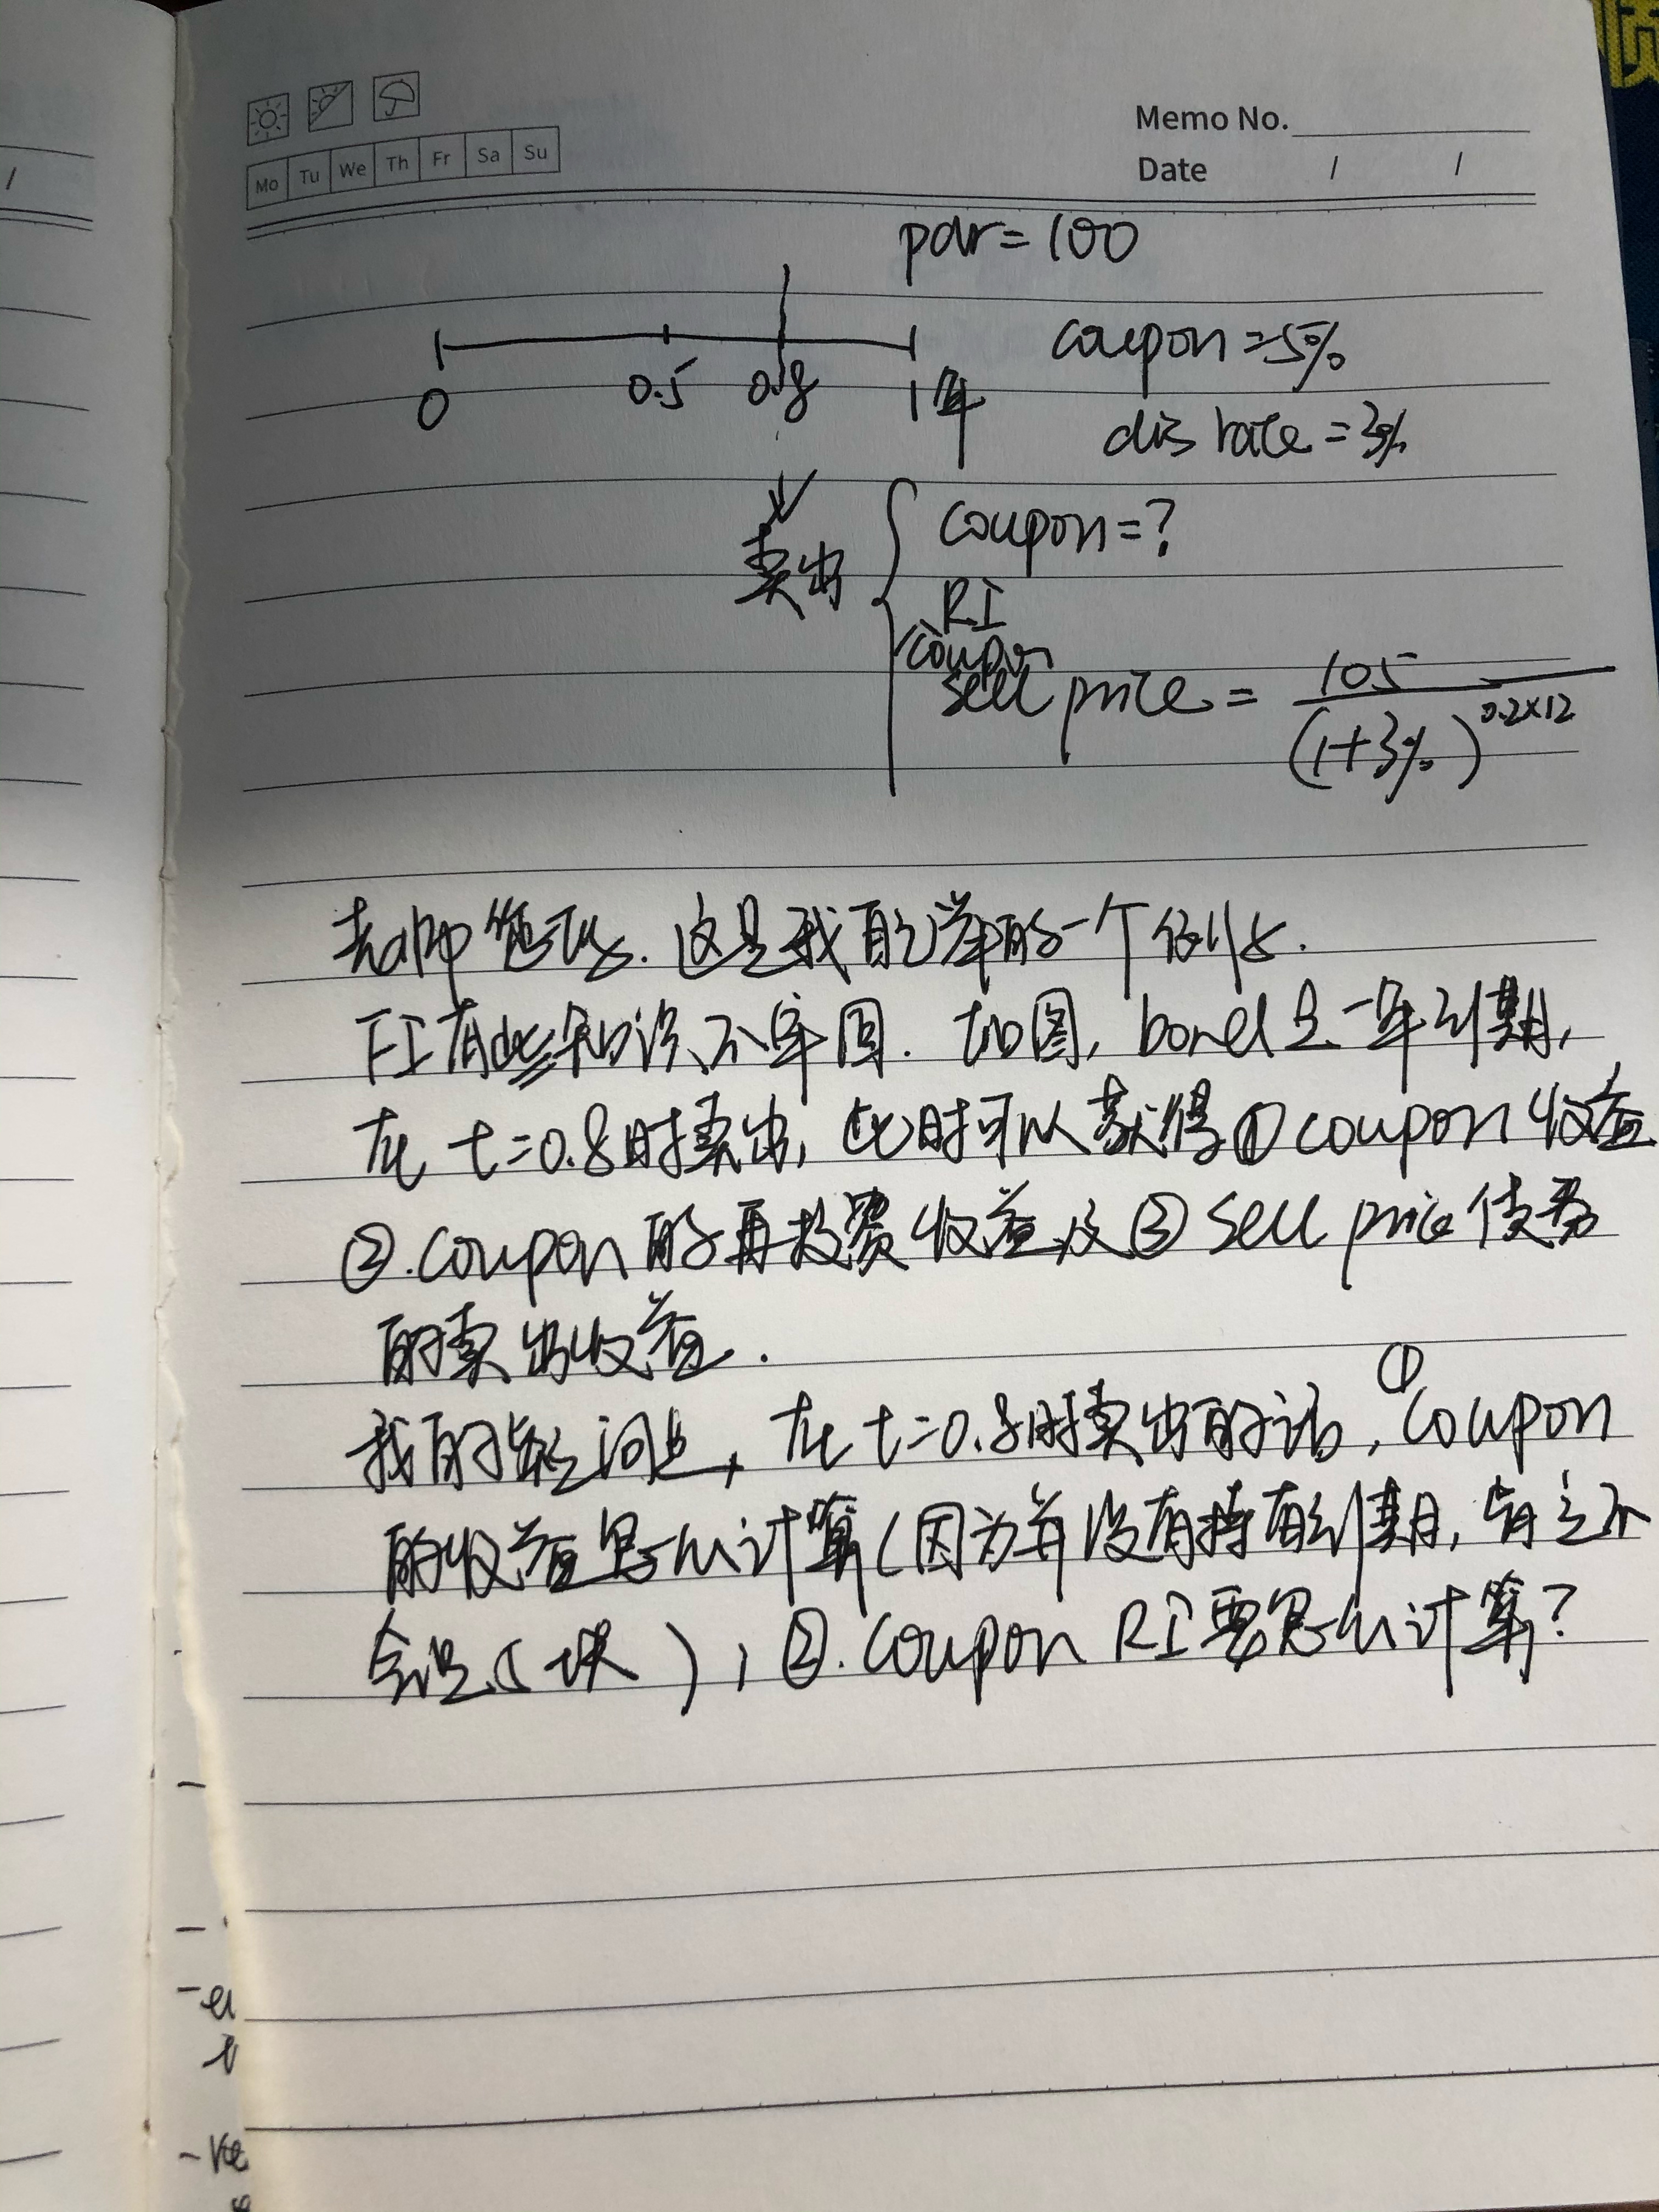 Memo No.
Mo Tu We Th Fr Sa Su
Date / /
par=100
0 0.5 0.8 1年
coupon=5%
dis rate=3%
卖出
coupon=?
RI
coupon
sell price = 105 / (1+3%)^0.2×12
app 这是我自己举的一个例子.
FI有些知识不牢固. 如图, bond是一年到期,
在 t=0.8时卖出, 此时可以获得①coupon收益
②.coupon的再投资收益及③sell price债券
的卖出收益.
我的疑问是, 在t=0.8时卖出的话, ①coupon
的收益怎么计算(因为并没有持有到期, 肯定不
会是5块), ②.coupon RI要怎么计算?